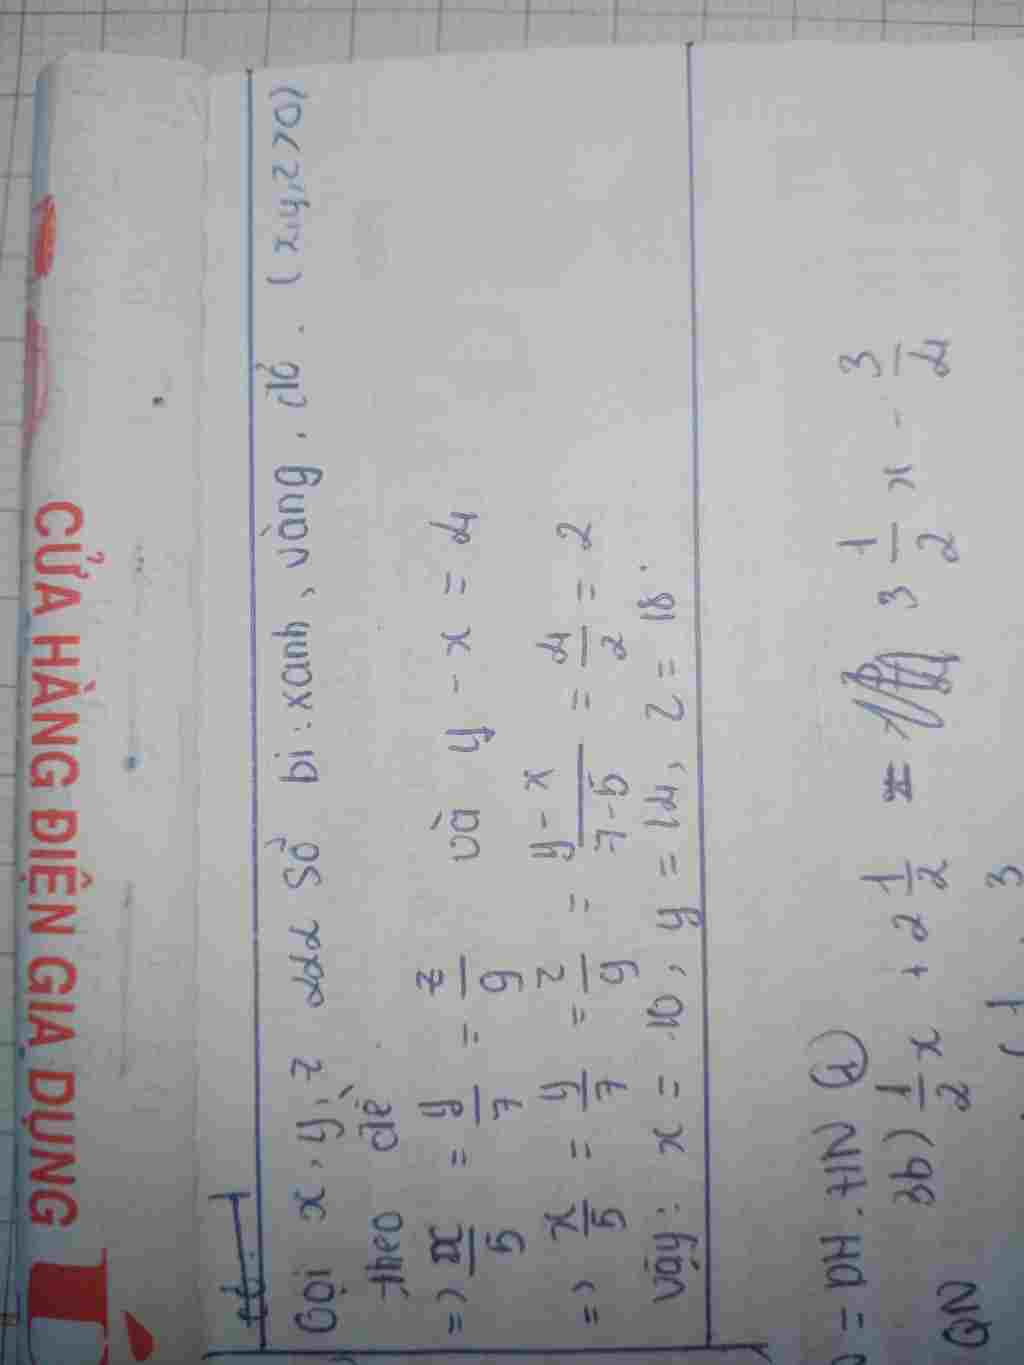 CỬA HÀNG ĐIỆN GIA DỤNG
Gọi x, y, z các số bi: xanh, vàng, đỏ. (x,y,z>0)
theo đề
=> x/5 = y/7 = z/9 và y - x = 4
=> x/5 = y/7 = z/9 = y - x/7-5 = 4/2 = 2
vậy: x = 10, y = 14, z = 18.
= DH.HN
3b) 1/2 x + 2 1/2 = 3 1/2 x - 3/4
QN